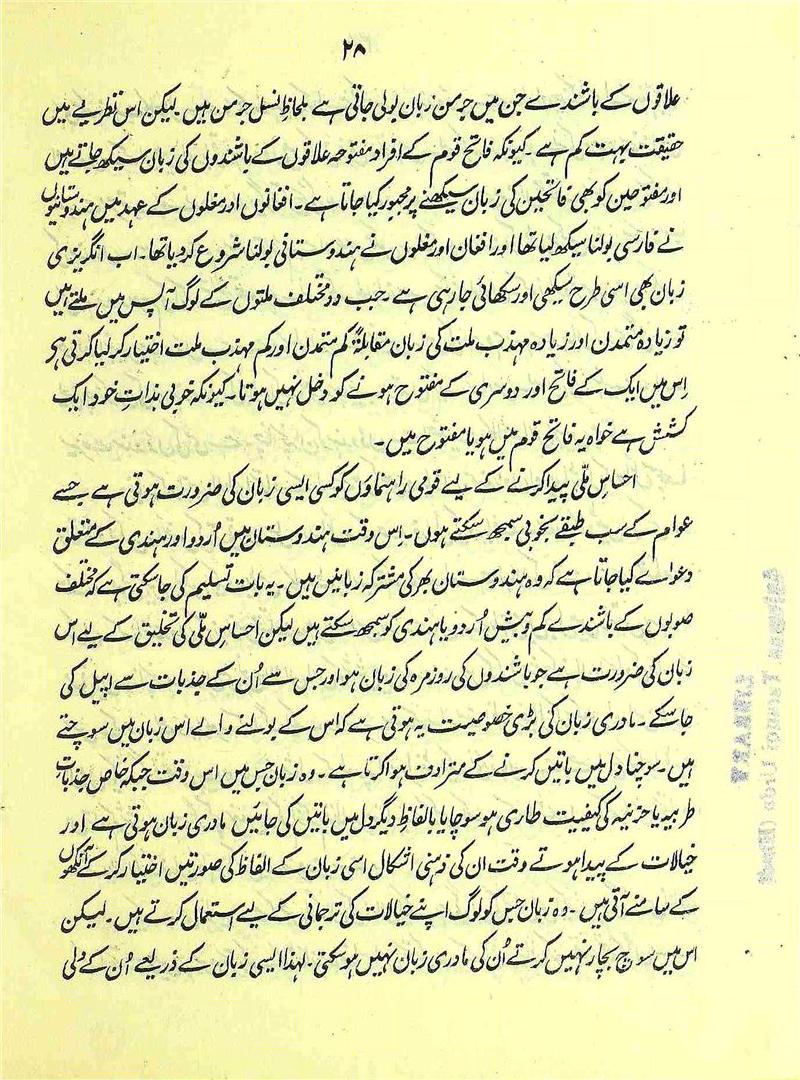 ۲۸
علاقوں کے باشندے جن میں جرمن زبان بولی جاتی ہے بلحاظِ نسل جرمن ہیں۔ لیکن اس نظریے میں
حقیقت بہت کم ہے۔ کیونکہ فاتح قوم کے افراد مفتوحہ علاقوں کے باشندوں کی زبان سیکھ جاتے ہیں
اور مفتوحین کو بھی فاتحین کی زبان سیکھنے پر مجبور کیا جاتا ہے۔ افغانوں اور مغلوں کے عہد میں ہندوستانیوں
نے فارسی بولنا سیکھ لیا تھا اور افغان اور مغلوں نے ہندوستانی بولنا شروع کر دیا تھا۔ اب انگریزی
زبان بھی اسی طرح سیکھی اور سکھائی جا رہی ہے۔ جب دو مختلف ملتوں کے لوگ آپس میں ملتے ہیں
تو زیادہ متمدن اور زیادہ مہذب ملت کی زبان مقابلۃً کم متمدن اور کم مہذب ملت اختیار کر لیا کرتی ہو
اِس میں ایک کے فاتح اور دوسری کے مفتوح ہونے کو دخل نہیں ہوتا۔ کیونکہ خوبی بذاتِ خود ایک
کشش ہے خواہ یہ فاتح قوم میں ہو یا مفتوح میں۔
احساسِ ملّی پیدا کرنے کے لیے قومی راہنماؤں کو کسی ایسی زبان کی ضرورت ہوتی ہے جسے
عوام کے سب طبقے بخوبی سمجھ سکتے ہوں۔ اِس وقت ہندوستان میں اُردو اور ہندی کے متعلق
دعواے کیا جاتا ہے کہ وہ ہندوستان بھر کی مشترکہ زبانیں ہیں۔ یہ بات تسلیم کی جا سکتی ہے کہ مختلف
صوبوں کے باشندے کم و بیش اُردو یا ہندی کو سمجھ سکتے ہیں لیکن احساسِ ملّی کی تخلیق کے لیے اس
زبان کی ضرورت ہے جو باشندوں کی روزمرہ کی زبان ہو اور جس سے اُن کے جذبات سے اپیل کی
جا سکے۔ مادری زبان کی بڑی خصوصیت یہ ہوتی ہے کہ اس کے بولنے والے اس زبان میں سوچتے
ہیں۔ سوچنا دل میں باتیں کرنے کے مترادف ہوا کرتا ہے۔ وہ زبان جس میں اس وقت جبکہ خاص جذباتِ
طربیہ یا حزنیہ کی کیفیت طاری ہو سوچا یا بالفاظِ دیگر دل میں باتیں کی جائیں مادری زبان ہوتی ہے اور
خیالات کے پیدا ہوتے وقت ان کی ذہنی اشکال اسی زبان کے الفاظ کی صورتیں اختیار کر کے آنکھوں
کے سامنے آتی ہیں۔ وہ زبان جس کو لوگ اپنے خیالات کی ترجمانی کے لیے استعمال کرتے ہیں۔ لیکن
اس میں سوچ بچار نہیں کرتے اُن کی مادری زبان نہیں ہو سکتی۔ لہٰذا ایسی زبان کے ذریعے اُن کے دلی